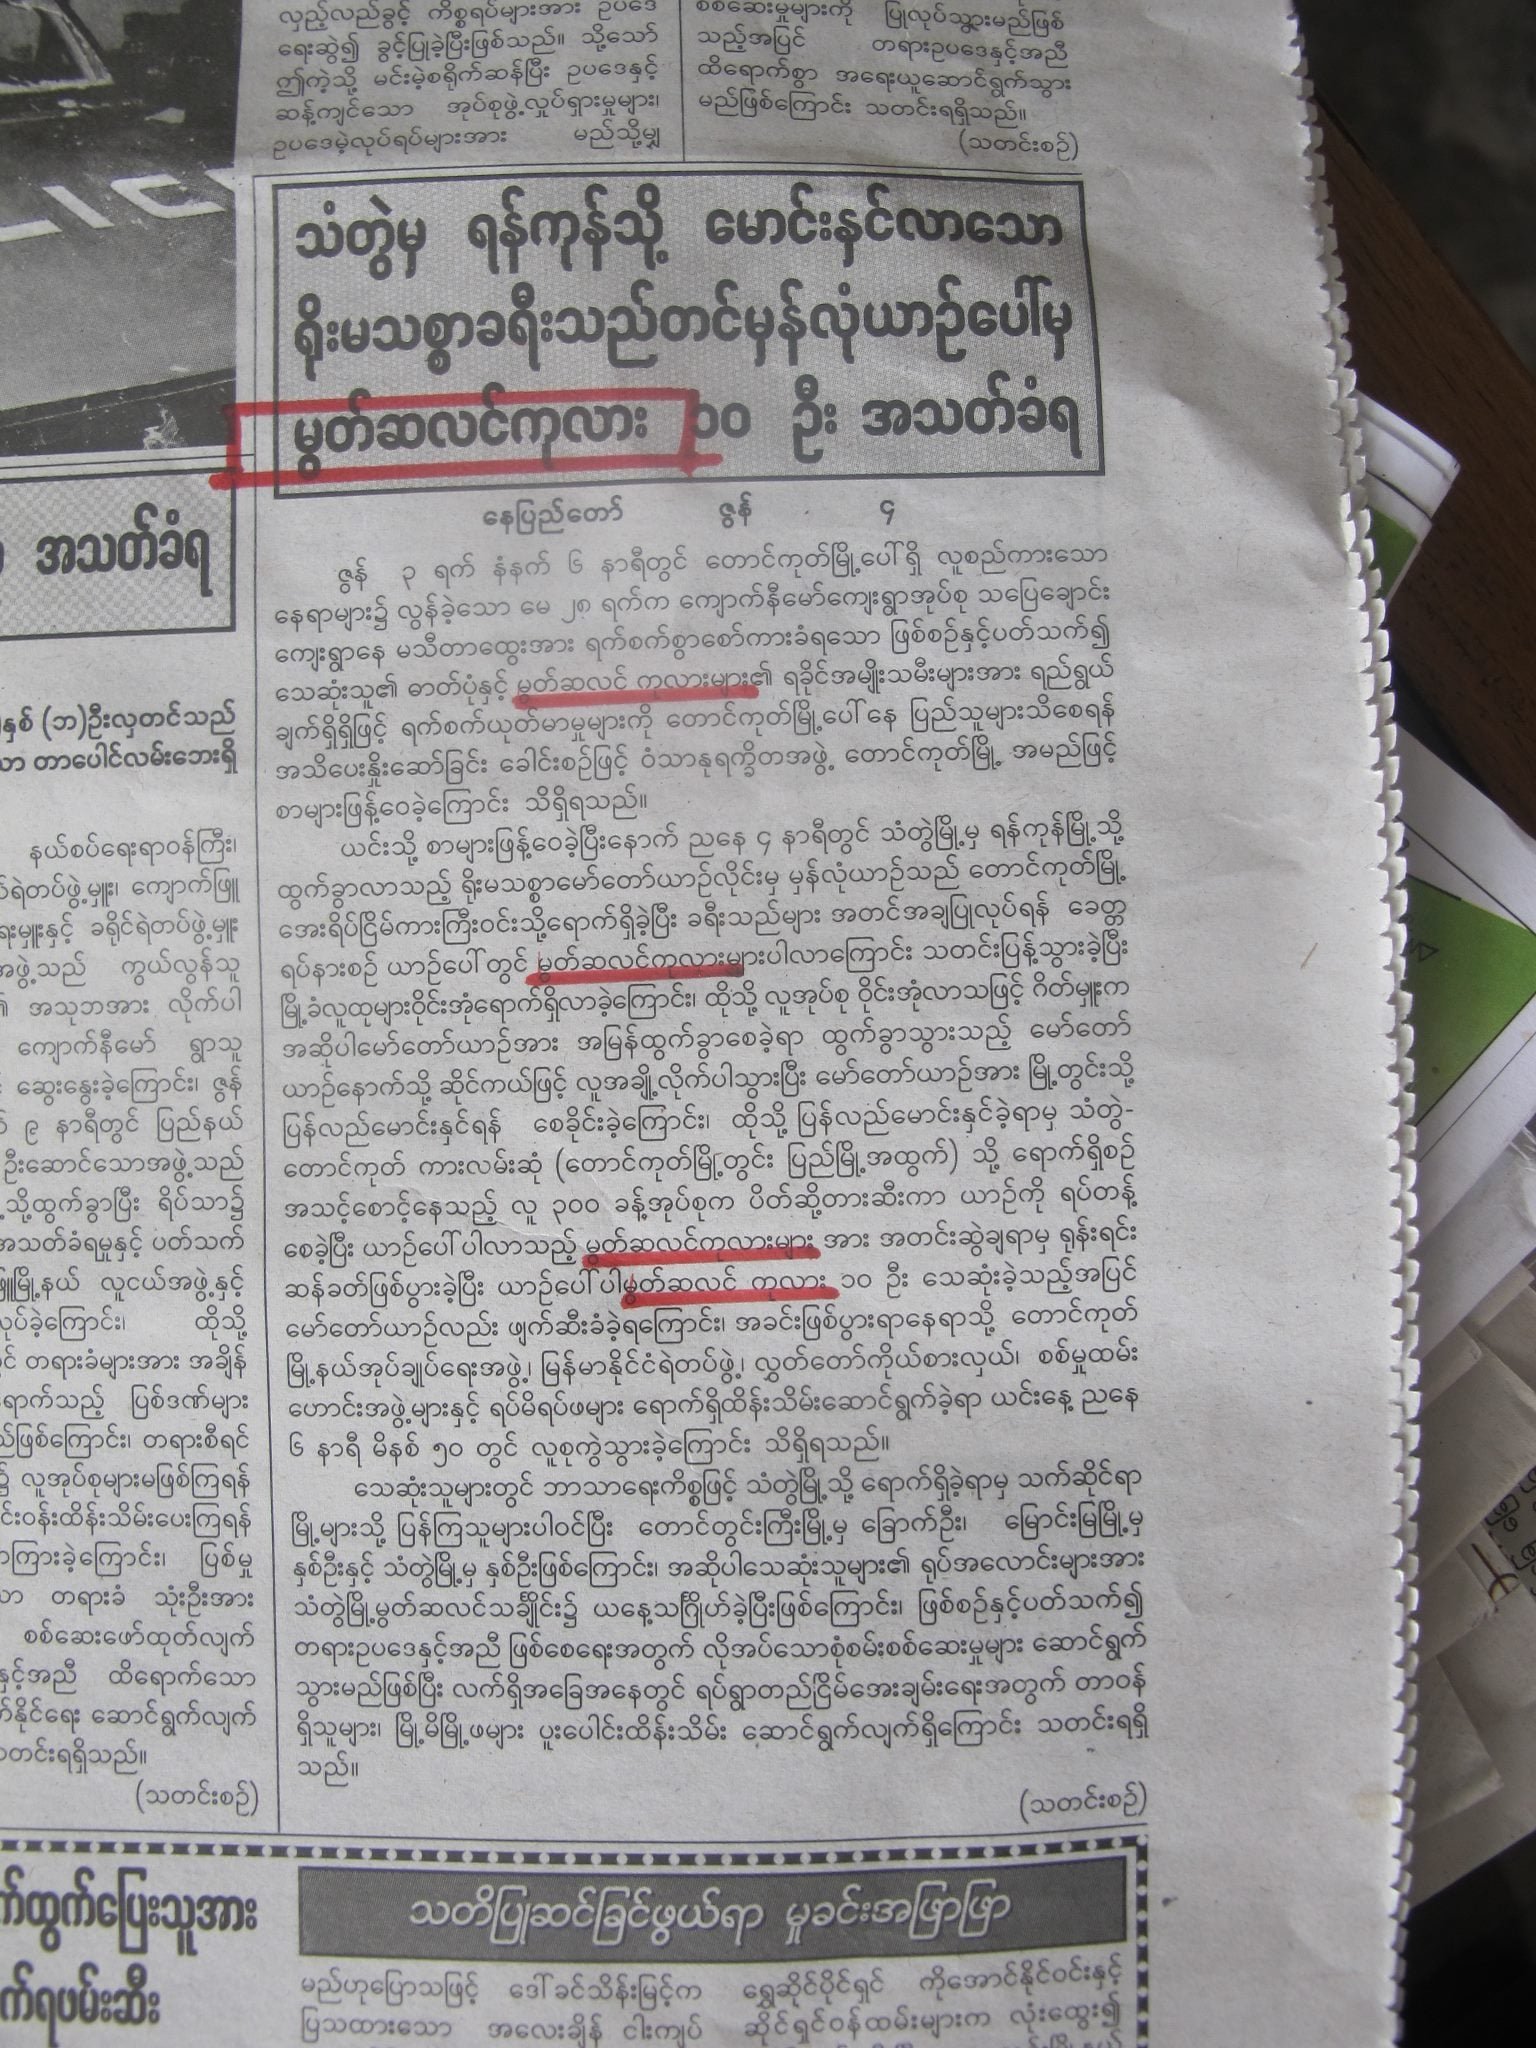 လှည့်လည်ခွင့် ကိစ္စရပ်များအား ဥပဒေ
ရေးဆွဲ၍ ခွင့်ပြုခဲ့ပြီးဖြစ်သည်။ သို့သော်
ဤကဲ့သို့ မင်းမဲ့စရိုက်ဆန်ပြီး ဥပဒေနှင့်
ဆန့်ကျင်သော အုပ်စုဖွဲ့လှုပ်ရှားမှုများ၊
ဥပဒေမဲ့လုပ်ရပ်များအား မည်သို့မျှ
စစ်ဆေးမှုများကို ပြုလုပ်သွားမည်ဖြစ်
သည့်အပြင် တရားဥပဒေနှင့်အညီ
ထိရောက်စွာ အရေးယူဆောင်ရွက်သွား
မည်ဖြစ်ကြောင်း သတင်းရရှိသည်။
(သတင်းစဉ်)
LIC
သံတွဲမှ ရန်ကုန်သို့ မောင်းနှင်လာသော
ရိုးမသစ္စာခရီးသည်တင်မှန်လုံယာဉ်ပေါ်မှ
မွတ်ဆလင်ကုလား ၁၀ ဦး အသတ်ခံရ
နေပြည်တော် ဇွန် ၄
ဇွန် ၃ ရက် နံနက် ၆ နာရီတွင် တောင်ကုတ်မြို့ပေါ်ရှိ လူစည်ကားသော
နေရာများ၌ လွန်ခဲ့သော မေ ၂၈ ရက်က ကျောက်နီမော်ကျေးရွာအုပ်စု သပြေချောင်း
ကျေးရွာနေ မသီတာထွေးအား ရက်စက်စွာစော်ကားခံရသော ဖြစ်စဉ်နှင့်ပတ်သက်၍
သေဆုံးသူ၏ ဓာတ်ပုံနှင့် မွတ်ဆလင် ကုလားများ၏ ရခိုင်အမျိုးသမီးများအား ရည်ရွယ်
ချက်ရှိရှိဖြင့် ရက်စက်ယုတ်မာမှုများကို တောင်ကုတ်မြို့ပေါ်နေ ပြည်သူများသိစေရန်
အသိပေးနှိုးဆော်ခြင်း ခေါင်းစဉ်ဖြင့် ဝံသာနုရက္ခိတအဖွဲ့ တောင်ကုတ်မြို့ အမည်ဖြင့်
စာများဖြန့်ဝေခဲ့ကြောင်း သိရှိရသည်။
ယင်းသို့ စာများဖြန့်ဝေခဲ့ပြီးနောက် ညနေ ၄ နာရီတွင် သံတွဲမြို့မှ ရန်ကုန်မြို့သို့
ထွက်ခွာလာသည့် ရိုးမသစ္စာမော်တော်ယာဉ်လိုင်းမှ မှန်လုံယာဉ်သည် တောင်ကုတ်မြို့
အေးရိပ်ငြိမ်ကားကြီးဝင်းသို့ရောက်ရှိခဲ့ပြီး ခရီးသည်များ အတင်အချပြုလုပ်ရန် ခေတ္တ
ရပ်နားစဉ် ယာဉ်ပေါ်တွင် မွတ်ဆလင်ကုလားများပါလာကြောင်း သတင်းပြန့်သွားခဲ့ပြီး
မြို့ခံလူထုများဝိုင်းအုံရောက်ရှိလာခဲ့ကြောင်း၊ ထိုသို့ လူအုပ်စု ဝိုင်းအုံလာသဖြင့် ဂိတ်မှူးက
အဆိုပါမော်တော်ယာဉ်အား အမြန်ထွက်ခွာစေခဲ့ရာ ထွက်ခွာသွားသည့် မော်တော်
ယာဉ်နောက်သို့ ဆိုင်ကယ်ဖြင့် လူအချို့လိုက်ပါသွားပြီး မော်တော်ယာဉ်အား မြို့တွင်းသို့
ပြန်လည်မောင်းနှင်ရန် စေခိုင်းခဲ့ကြောင်း၊ ထိုသို့ပြန်လည်မောင်းနှင်ခဲ့ရာမှ သံတွဲ-
တောင်ကုတ် ကားလမ်းဆုံ (တောင်ကုတ်မြို့တွင်း ပြည်မြို့အထွက်) သို့ ရောက်ရှိစဉ်
အသင့်စောင့်နေသည့် လူ ၃၀၀ ခန့်အုပ်စုက ပိတ်ဆို့တားဆီးကာ ယာဉ်ကို ရပ်တန့်
စေခဲ့ပြီး ယာဉ်ပေါ်ပါလာသည့် မွတ်ဆလင်ကုလားများ အား အတင်းဆွဲချရာမှ ရုန်းရင်း
ဆန်ခတ်ဖြစ်ပွားခဲ့ပြီး ယာဉ်ပေါ်ပါမွတ်ဆလင် ကုလား ၁၀ ဦး သေဆုံးခဲ့သည့်အပြင်
မော်တော်ယာဉ်လည်း ဖျက်ဆီးခံခဲ့ရကြောင်း၊ အခင်းဖြစ်ပွားရာနေရာသို့ တောင်ကုတ်
မြို့နယ်အုပ်ချုပ်ရေးအဖွဲ့၊ မြန်မာနိုင်ငံရဲတပ်ဖွဲ့၊ လွှတ်တော်ကိုယ်စားလှယ်၊ စစ်မှုထမ်း
ဟောင်းအဖွဲ့များနှင့် ရပ်မိရပ်ဖများ ရောက်ရှိထိန်းသိမ်းဆောင်ရွက်ခဲ့ရာ ယင်းနေ့ ညနေ
၆ နာရီ မိနစ် ၅၀ တွင် လူစုကွဲသွားခဲ့ကြောင်း သိရှိရသည်။
သေဆုံးသူများတွင် ဘာသာရေးကိစ္စဖြင့် သံတွဲမြို့သို့ ရောက်ရှိခဲ့ရာမှ သက်ဆိုင်ရာ
မြို့များသို့ ပြန်ကြသူများပါဝင်ပြီး တောင်တွင်းကြီးမြို့မှ ခြောက်ဦး၊ မြောင်းမြမြို့မှ
နှစ်ဦးနှင့် သံတွဲမြို့မှ နှစ်ဦးဖြစ်ကြောင်း၊ အဆိုပါသေဆုံးသူများ၏ ရုပ်အလောင်းများအား
သံတွဲမြို့မွတ်ဆလင်သင်္ချိုင်း၌ ယနေ့သင်္ဂြိုဟ်ခဲ့ပြီးဖြစ်ကြောင်း၊ ဖြစ်စဉ်နှင့်ပတ်သက်၍
တရားဥပဒေနှင့်အညီ ဖြစ်စေရေးအတွက် လိုအပ်သောစုံစမ်းစစ်ဆေးမှုများ ဆောင်ရွက်
သွားမည်ဖြစ်ပြီး လက်ရှိအခြေအနေတွင် ရပ်ရွာတည်ငြိမ်အေးချမ်းရေးအတွက် တာဝန်
ရှိသူများ၊ မြို့မိမြို့ဖများ ပူးပေါင်းထိန်းသိမ်း ဆောင်ရွက်လျက်ရှိကြောင်း သတင်းရရှိ
သည်။
(သတင်းစဉ်)
အသတ်ခံရ
နှစ် (ဘ)ဦးလှတင်သည်
တာပေါင်လမ်းဘေးရှိ
နယ်စပ်ရေးရာဝန်ကြီး၊
ရဲတပ်ဖွဲ့မှူး၊ ကျောက်ဖြူ
ရေးမှူးနှင့် ခရိုင်ရဲတပ်ဖွဲ့မှူး
အဖွဲ့သည် ကွယ်လွန်သူ
၏ အသုဘအား လိုက်ပါ
ကျောက်နီမော် ရွာသူ
ဆွေးနွေးခဲ့ကြောင်း၊ ဇွန်
၉ နာရီတွင် ပြည်နယ်
ဦးဆောင်သောအဖွဲ့သည်
သို့ထွက်ခွာပြီး ရိပ်သာ၌
အသတ်ခံရမှုနှင့် ပတ်သက်
ဖြူမြို့နယ် လူငယ်အဖွဲ့နှင့်
လုပ်ခဲ့ကြောင်း၊ ထိုသို့
တရားခံများအား အချိန်
ရောက်သည့် ပြစ်ဒဏ်များ
ဖြစ်ကြောင်း၊ တရားစီရင်
လူအုပ်စုများမဖြစ်ကြရန်
ဝန်းထိန်းသိမ်းပေးကြရန်
ကြားခဲ့ကြောင်း၊ ပြစ်မှု
တရားခံ သုံးဦးအား
စစ်ဆေးဖော်ထုတ်လျက်
နှင့်အညီ ထိရောက်သော
နိုင်ရေး ဆောင်ရွက်လျက်
သတင်းရရှိသည်။
(သတင်းစဉ်)
က်ထွက်ပြေးသူအား
က်ရဖမ်းဆီး
သတိပြုဆင်ခြင်ဖွယ်ရာ မှုခင်းအဖြာဖြာ
မည်ဟုပြောသဖြင့် ဒေါ်ခင်သိန်းမြင့်က
ပြသထားသော အလေးချိန် ငါးကျပ်
ရွှေဆိုင်ပိုင်ရှင် ကိုအောင်နိုင်ဝင်းနှင့်
ဆိုင်ရှင်ဝန်ထမ်းများက လုံးထွေး၍